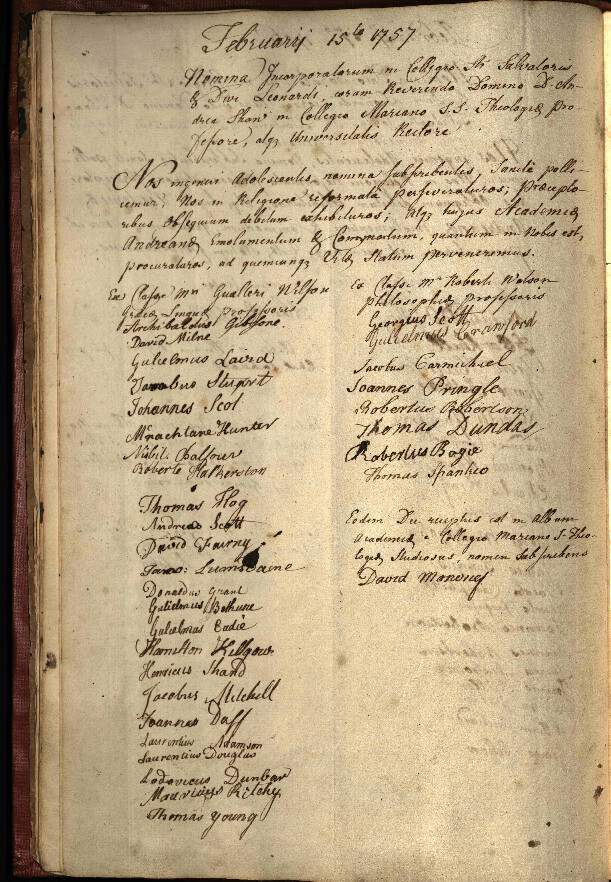 Februarij 15to 1757
Nomina Incorporatorum in Collegio Sti Salvatoris
& Divi Leonardi, coram Reverendo Domino D. An-
drea Shaw in Collegio Mariano S.S. Theologiæ Pro-
fessore, atq Universitatis Rectore
Nos ingenui Adolescentes, nomina subscribentes, Sancte polli-
cemur, Nos in Religione reformata perseveraturos; Præcepto-
ribus Obsequium debitum exhibituros; Atq hujus Academiæ
Andreanæ Emolumentum & Commodum, quantum in Nobis est,
procuraturos, ad quemcunq Vitæ Statum pervenerimus.
Ex Classe Mri Gualteri Wilson
Græcæ Linguæ Professoris
Archibaldus Gibsone.
David Milne
Gulielmus Laird
Jacobus Stuart
Johannes Scot
Mcnachtane Hunter
Nisbit Balfour
Roberte Halkerston
Thomas Hog
Andreas Scott
David
Jaco: Lumsdaine
Donaldus Grant
Gulielmus Bethune
Gulielmus Eadie
Hamilton Killgour
Henricus Shand
Jacobus Mitchell
Joannes Daff
Laurentius Adamson
Laurentius Douglas
Lodovicus Dunbar
Mauricius Ritchy
Thomas Young
Ex Classe Mri Roberti Watson
Philosophiæ Professoris
Georgius Scott
Gulielmus Crawford
Jacobus Carmichael
Joannes Pringle
Robertus Robertson
Thomas Dundas
Robertus Bogie
Thomas Spankie
Eodem Die receptus est in Album
Academiæ e Collegio Mariano S. Theo-
logiæ Studiosus, nomen Subscribens
David